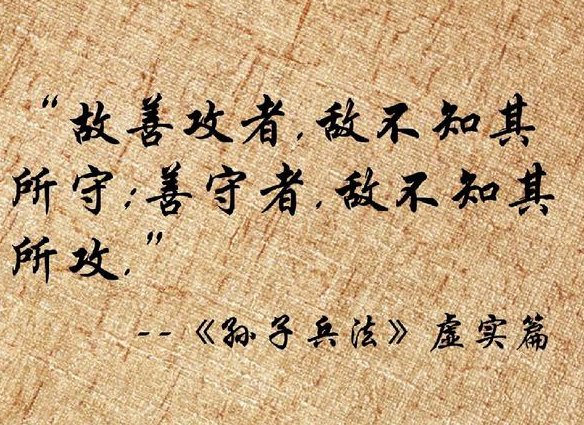 “故善攻者,敌不知其
所守;善守者,敌不知其
所攻.”
--《孙子兵法》虚实篇